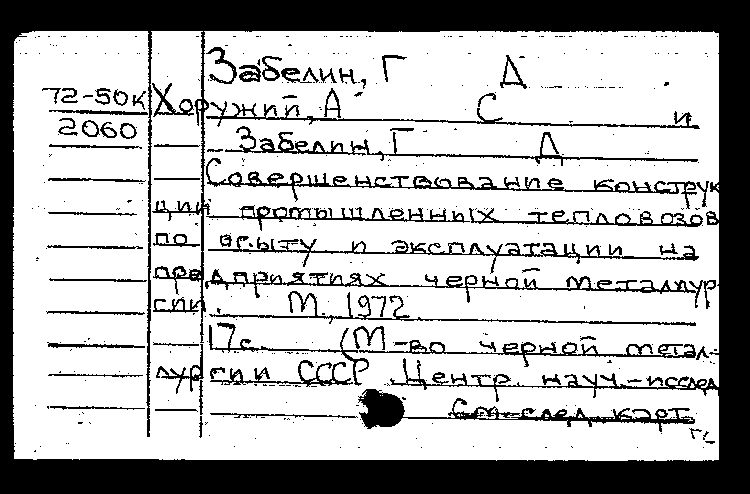 Забелин, Г Д
72-50к Хоружий, А С и
2060 Забелин, Г Д
Совершенствование конструк
ции промышленных тепловозов
по опыту и эксплуатации на
предприятиях черной металлур
гии. М., 1972
17с. (М-во черной метал-
лургии СССР. Центр. науч.-исслед
См. след. карт.